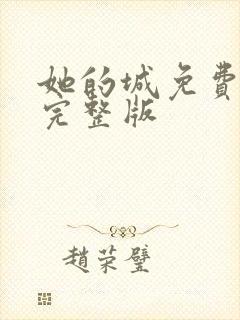 她的城免費
完整版
趙荣璧